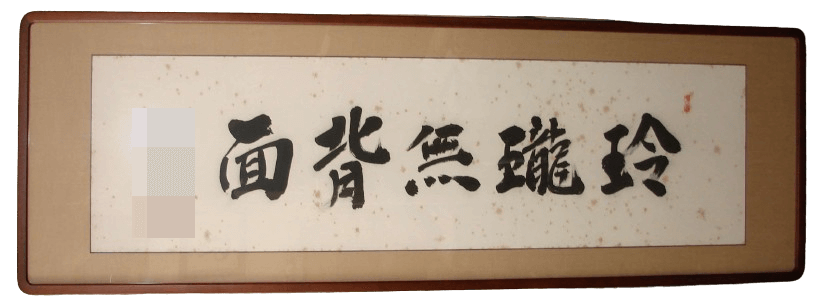 玲瓏無背面